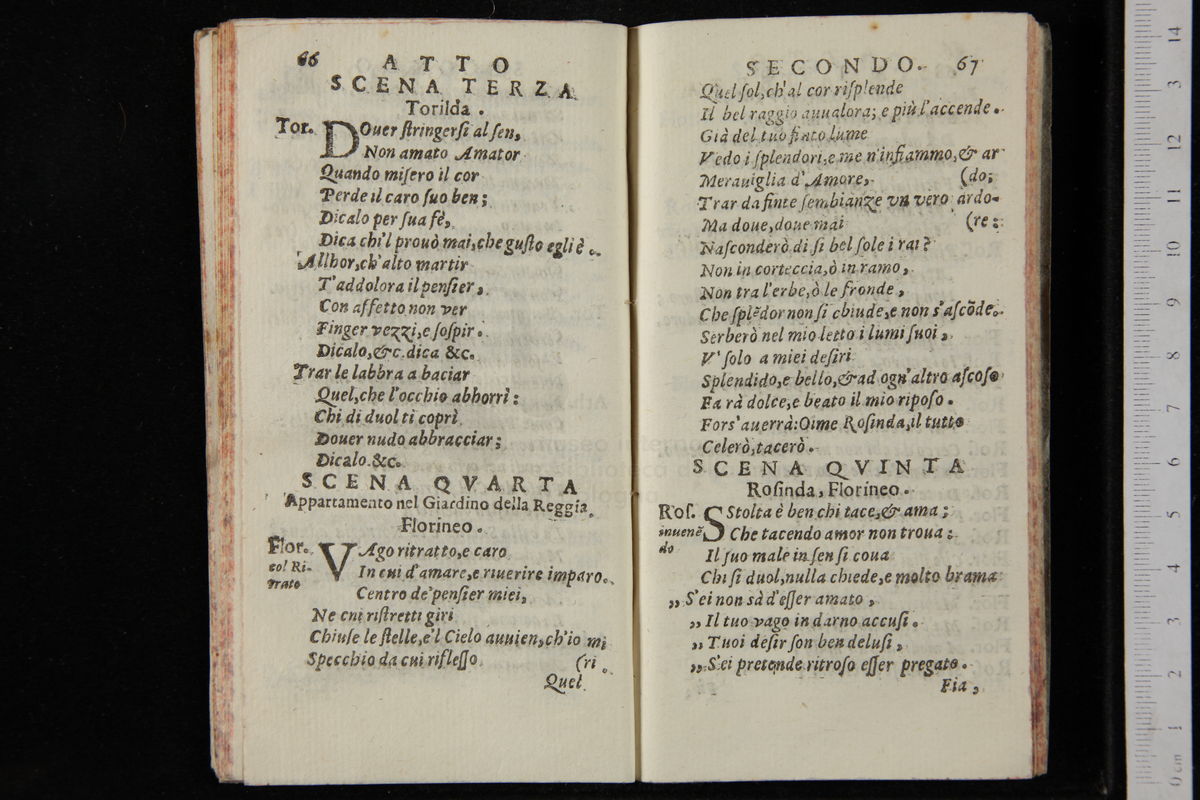 66 ATTO
SCENA TERZA
Torilda.
Tor. DOuer ſtringerſi al ſen,
Non amato Amator
Quando miſero il cor
Perde il caro ſuo ben;
Dicalo per ſua fè,
Dica chi'l prouò mai, che guſto egli è.
Allhor, ch'alto martir
T'addolora il penſier,
Con affetto non ver
Finger vezzi, e ſoſpir.
Dicalo, &c. dica &c.
Trar le labbra a baciar
Quel, che l'occhio abhorrì:
Chi di duol ti coprì
Douer nudo abbracciar;
Dicalo. &c.
SCENA QVARTA
Appartamento nel Giardino della Reggia.
Florineo.
Flor. VAgo ritratto, e caro
col Ri- In cui d'amare, e riuerire imparo.
trato Centro de'penſier miei,
Ne cui riſtretti giri
Chiuſe le ſtelle, e'l Cielo auuien, ch'io mi
Specchio da cui rifleſſo (ri.
Quel
SECONDO. 67
Quel ſol, ch'al cor riſplende
Il bel raggio auualora; e più l'accende.
Già del tuo finto lume
Vedo i ſplendori, e me n'infiammo, & ar
Merauiglia d'Amore, (do;
Trar da finte ſembianze vn vero ardo-
Ma doue, doue mai (re:
Naſconderò di ſi bel ſole i rai?
Non in corteccia, ò in ramo,
Non tra l'erbe, ò le fronde,
Che ſplẽdor non ſi chiude, e non s'aſcõde.
Serberò nel mio letto i lumi ſuoi,
V' ſolo a miei deſiri
Splendido, e bello, & ad ogn'altro aſcoſo
Farà dolce, e beato il mio ripoſo.
Fors'auerrà: Oime Roſinda, il tutto
Celerò, tacerò.
SCENA QVINTA
Roſinda, Florineo.
Roſ. STolta è ben chi tace, & ama;
inuenẽ Che tacendo amor non troua:
do Il ſuo male in ſen ſi coua
Chi ſi duol, nulla chiede, e molto brama
„ S'ei non sà d'eſſer amato,
„ Il tuo vago in darno accuſi.
„ Tuoi deſir ſon ben deluſi,
„ S'ei pretende ritroſo eſſer pregato.
Fia,
14
13
12
11
10
9
8
7
6
5
4
3
2
1
0 cm